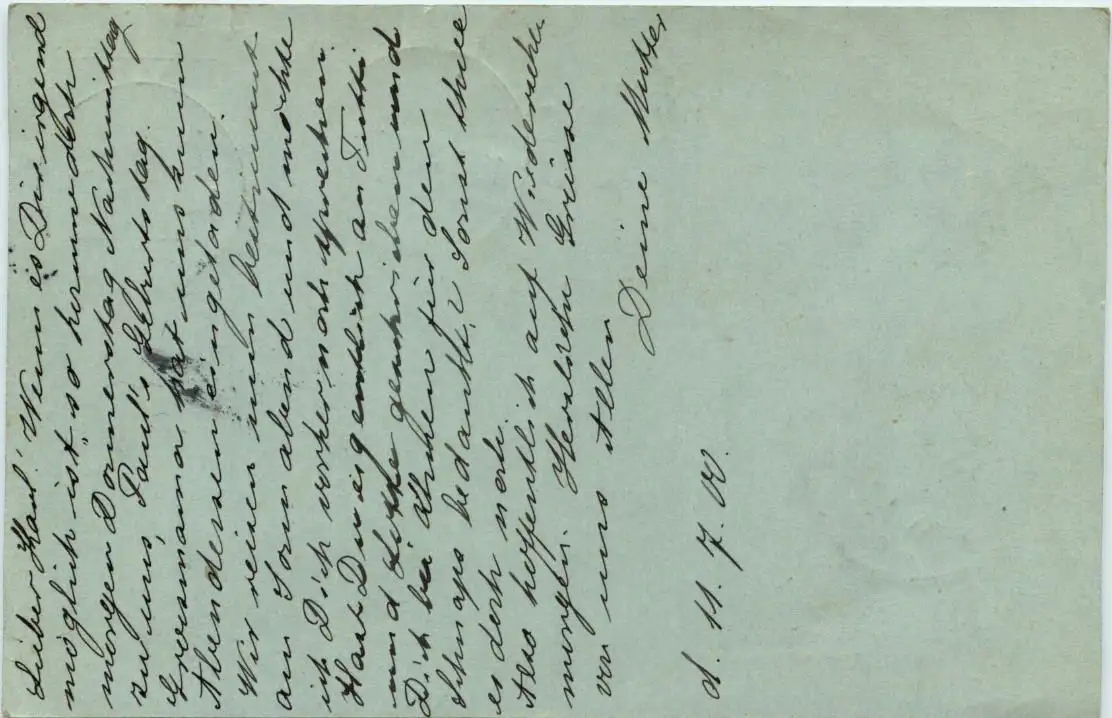 Lieber Karl! Wenn es Dir irgend
möglich ist, so komme doch
morgen Donnerstag Nachmittag
zu uns, Paul's Geburtstag.
Grossmama hat uns zum
Abendessen eingeladen.
Wir reisen nun bestimmt
am Sonnabend und möchte
ich Dich vorher noch sprechen.
Hast Du eigentlich an
und geschrieben und
Dich bei Onkel für den
Schnaps bedankt? Sonst thue
es doch noch.
Also hoffentlich auf Wiedersehen
morgen. Herzliche Grüsse
von uns Allen
Deine Mutter
d. 11.7.00.